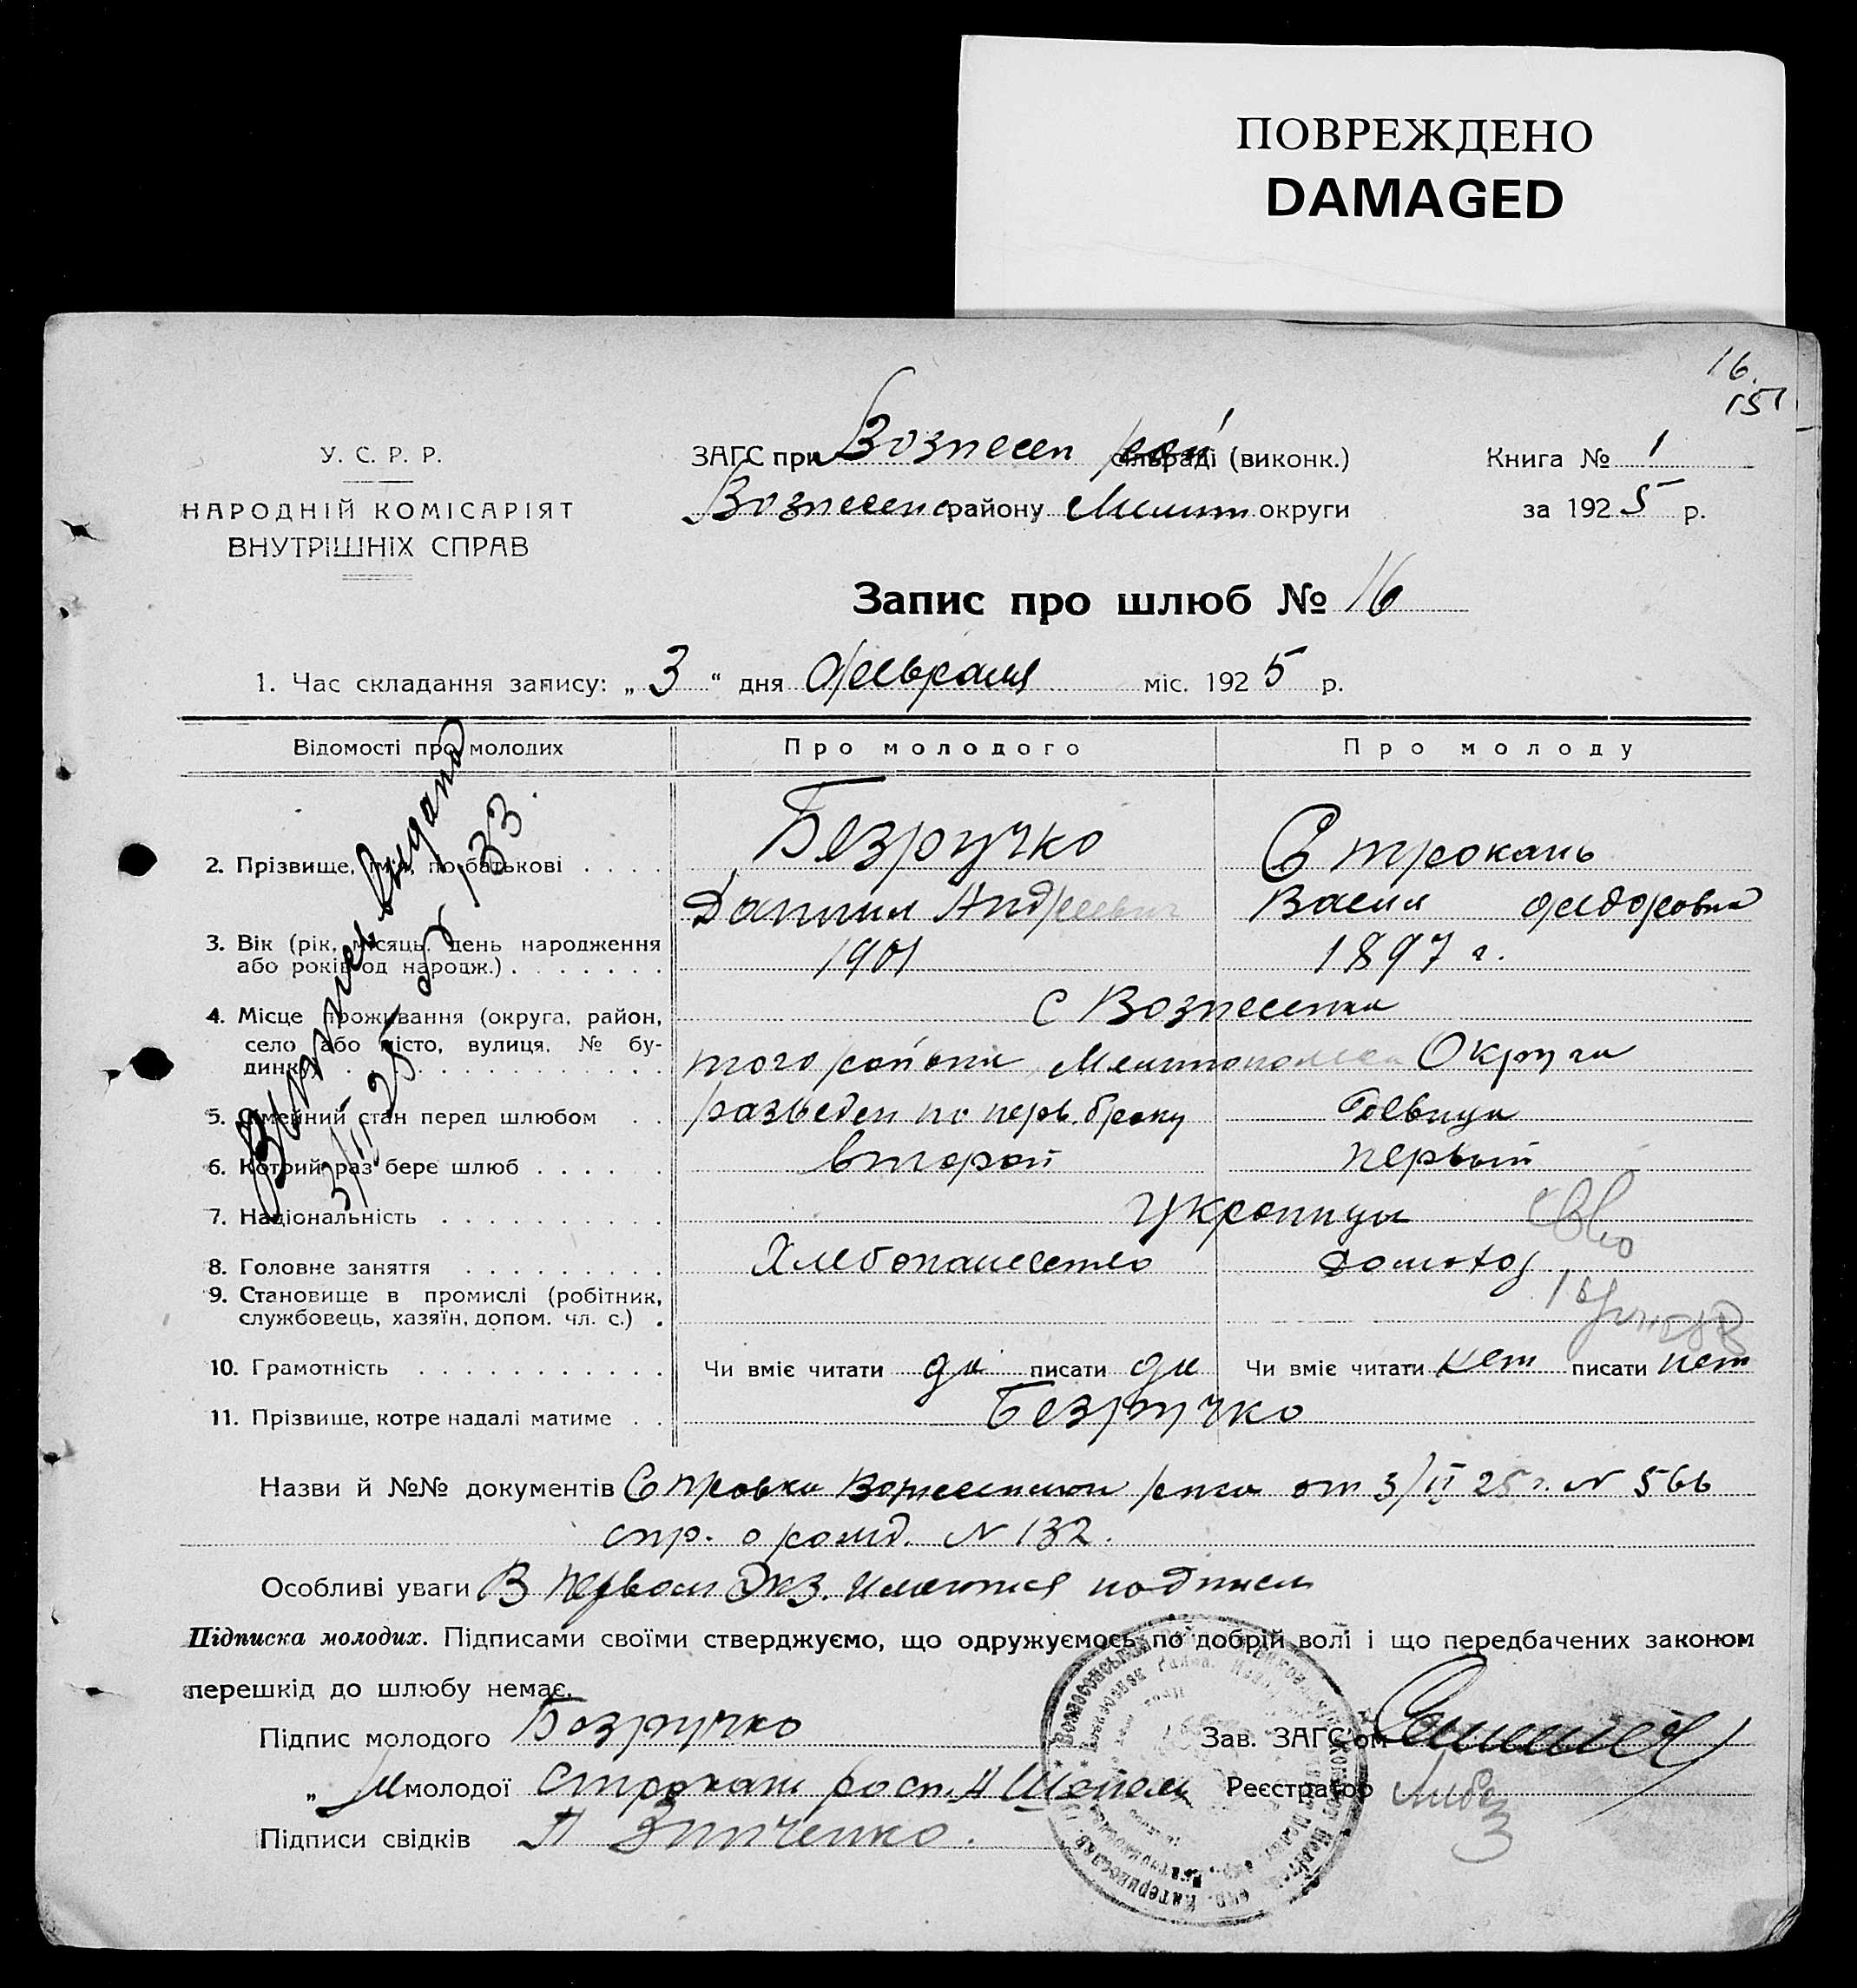 ПОВРЕЖДЕНО
DAMAGED
16.
151
У. С. Р. Р.
НАРОДНІЙ КОМІСАРІЯТ
ВНУТРІШНІХ СПРАВ
ЗАГС при Вознесен рай сільраді (виконк.)
Вознесен району Мелит округи
Книга № 1
за 1925 р.
Запис про шлюб № 16
1. Час складання запису: „ 3 “ дня февраля міс. 1925 р.
Відомості про молодих
Про молодого
Про молоду
2. Прізвище, ім'я, по-батькові
Безручко
Даниил Андреевич
Строкань
Васил федоровна
3. Вік (рік, місяць, день народження
або років од народж.)
1901
1897 г.
4. Місце проживання (округа, район,
село або місто, вулиця, № бу-
динку)
с Вознесенка
того района Мелитопольск Округи
5. Сімейний стан перед шлюбом
разведен по перв. браку
девица
6. Котрий раз бере шлюб
второй
первый
7. Національність
Украинцы
8. Головне заняття
Хлебопашество
домохоз
9. Становище в промислі (робітник,
службовець, хазяїн, допом. чл. с.)
10. Грамотність
Чи вміє читати да писати да
Чи вміє читати нет писати нет
11. Прізвище, котре надалі матиме
Безручко
Выпись выдана
3/II 25 № 133.
Назви й №№ документів Справка от 3/II 25 г. N 566
спр. о N 132.
Особливі уваги В первом Экз. имеются подписи
Підписка молодих. Підписами своїми стверджуємо, що одружуємось по добрій волі і що передбачених законом
перешкід до шлюбу немає.
Підпис молодого Безручко
Зав. ЗАГС'ом
„ молодої Строкань
Реєстратор
Підписи свідків Зинченко.